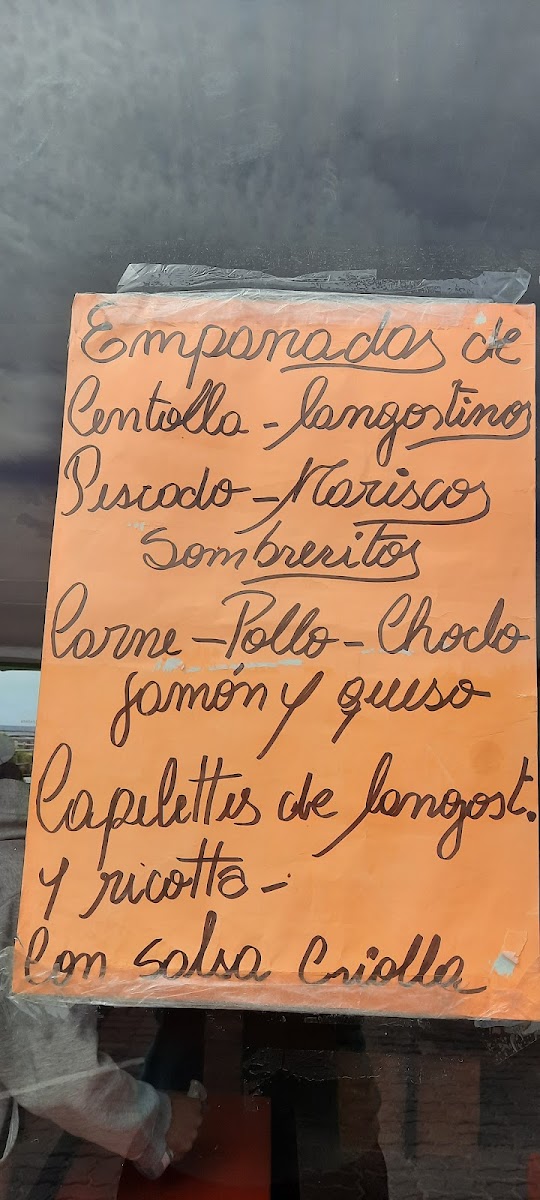 Empanadas de
Centolla - langostinos
Pescado - Mariscos
Sombreritos
Carne - Pollo - Choclo
Jamón y queso
Capelettis de langost.
y ricotta -
Con salsa Criolla